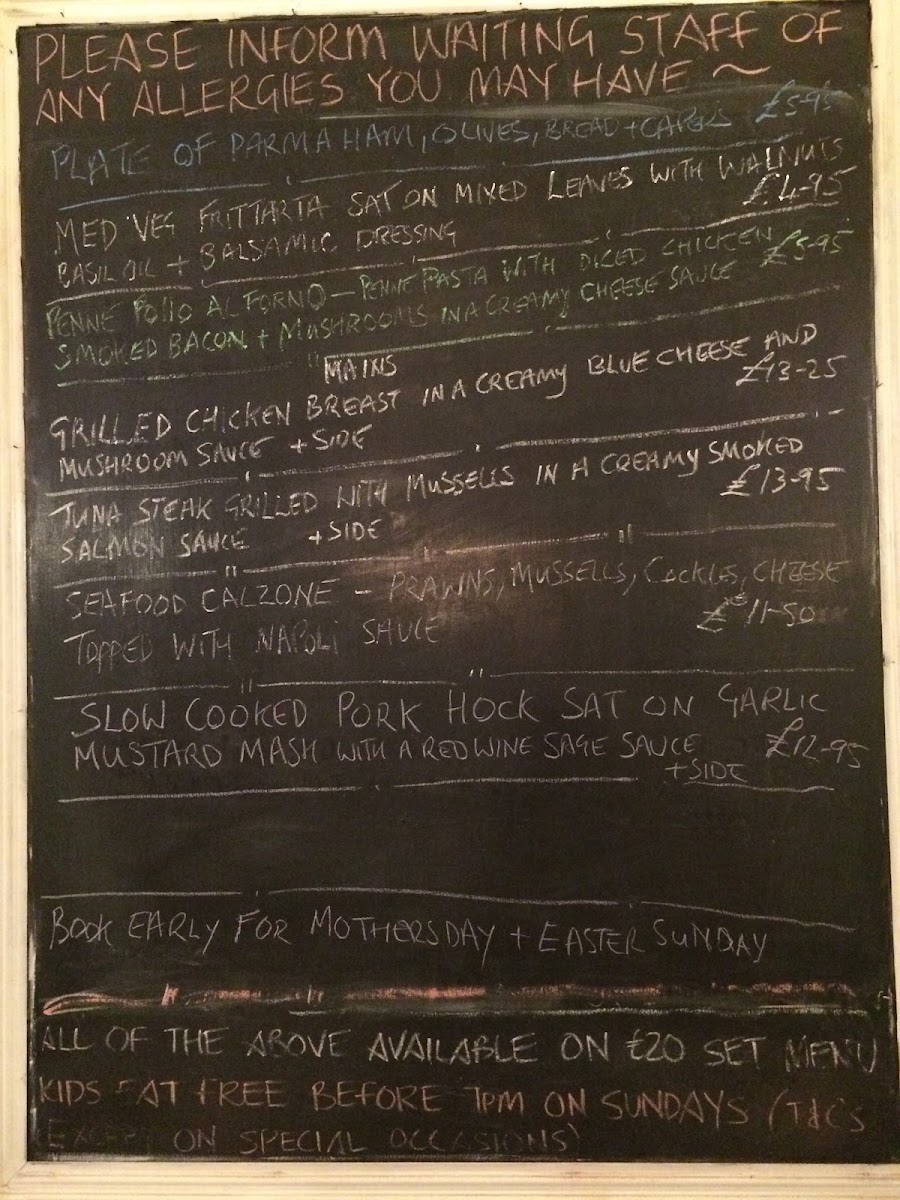 PLEASE INFORM WAITING STAFF OF
ANY ALLERGIES YOU MAY HAVE ~
PLATE OF PARMA HAM, OLIVES, BREAD + CAPERS £5-95
MED VEG FRITTARTA SAT ON MIXED LEAVES WITH WALNUTS
BASIL OIL + BALSAMIC DRESSING £4-95
PENNE POLLO AL FORNO - PENNE PASTA WITH DICED CHICKEN £5-95
SMOKED BACON + MUSHROOMS IN A CREAMY CHEESE SAUCE
MAINS
GRILLED CHICKEN BREAST IN A CREAMY BLUE CHEESE AND
MUSHROOM SAUCE + SIDE £13-25
TUNA STEAK GRILLED WITH MUSSELLS IN A CREAMY SMOKED
SALMON SAUCE + SIDE £13-95
SEAFOOD CALZONE - PRAWNS, MUSSELLS, COCKLES, CHEESE
TOPPED WITH NAPOLI SAUCE £11-50
SLOW COOKED PORK HOCK SAT ON GARLIC
MUSTARD MASH WITH A RED WINE SAGE SAUCE £12-95
+ SIDE
BOOK EARLY FOR MOTHERSDAY + EASTER SUNDAY
ALL OF THE ABOVE AVAILABLE ON £20 SET MENU
KIDS EAT FREE BEFORE 7PM ON SUNDAYS (T&C'S
EXCEPT ON SPECIAL OCCASIONS)